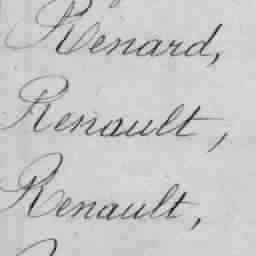 Renard,
Renault,
Renault,